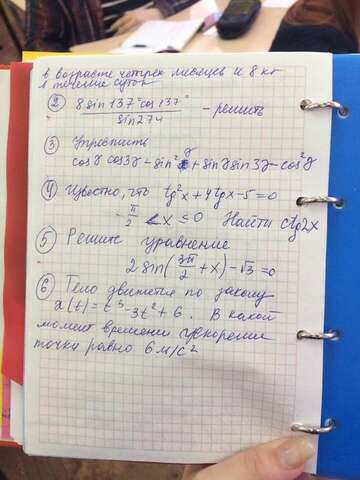 в возрасте четырех месяцев и 8 кг
в течение суток
② 8 sin 137° cos 137° / sin 274 - решить
③ Упростить
cos γ cos 3γ - sin² γ + sin γ sin 3γ - cos² γ
④ Известно, что tg²x + 4tgx - 5 = 0
- π/2 < x ≤ 0 Найти ctg2x
⑤ Решите уравнение
2 sin (3π/2 + x) - √3 = 0
⑥ Тело движется по закону
x(t) = t³ - 3t² + 6. В какой
момент времени ускорение
точки равно 6 м/с²